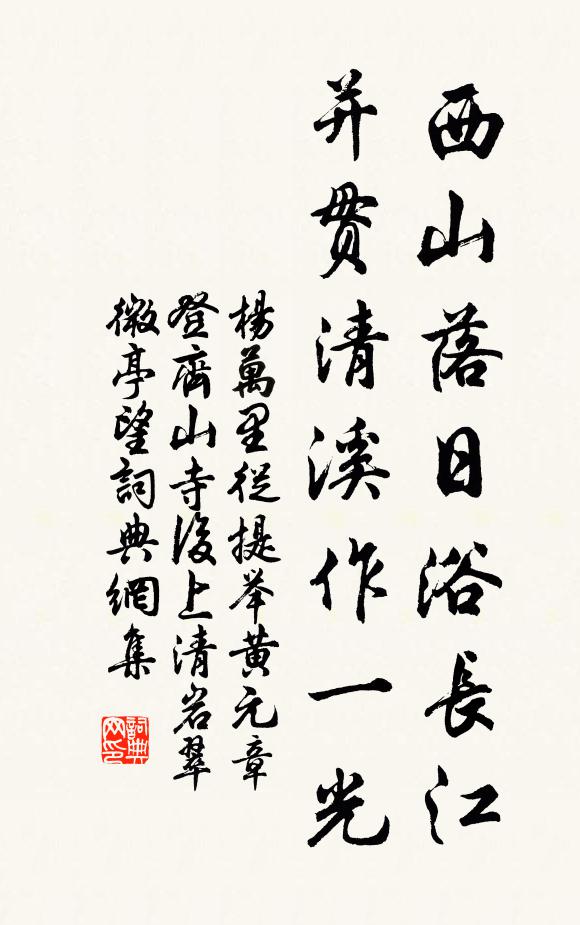 西山落日浴長江
并貫清溪作一光
楊萬里從提举黄元章
登齊山寺後上清岩翠
微亭望詞典網集
詞典
网印